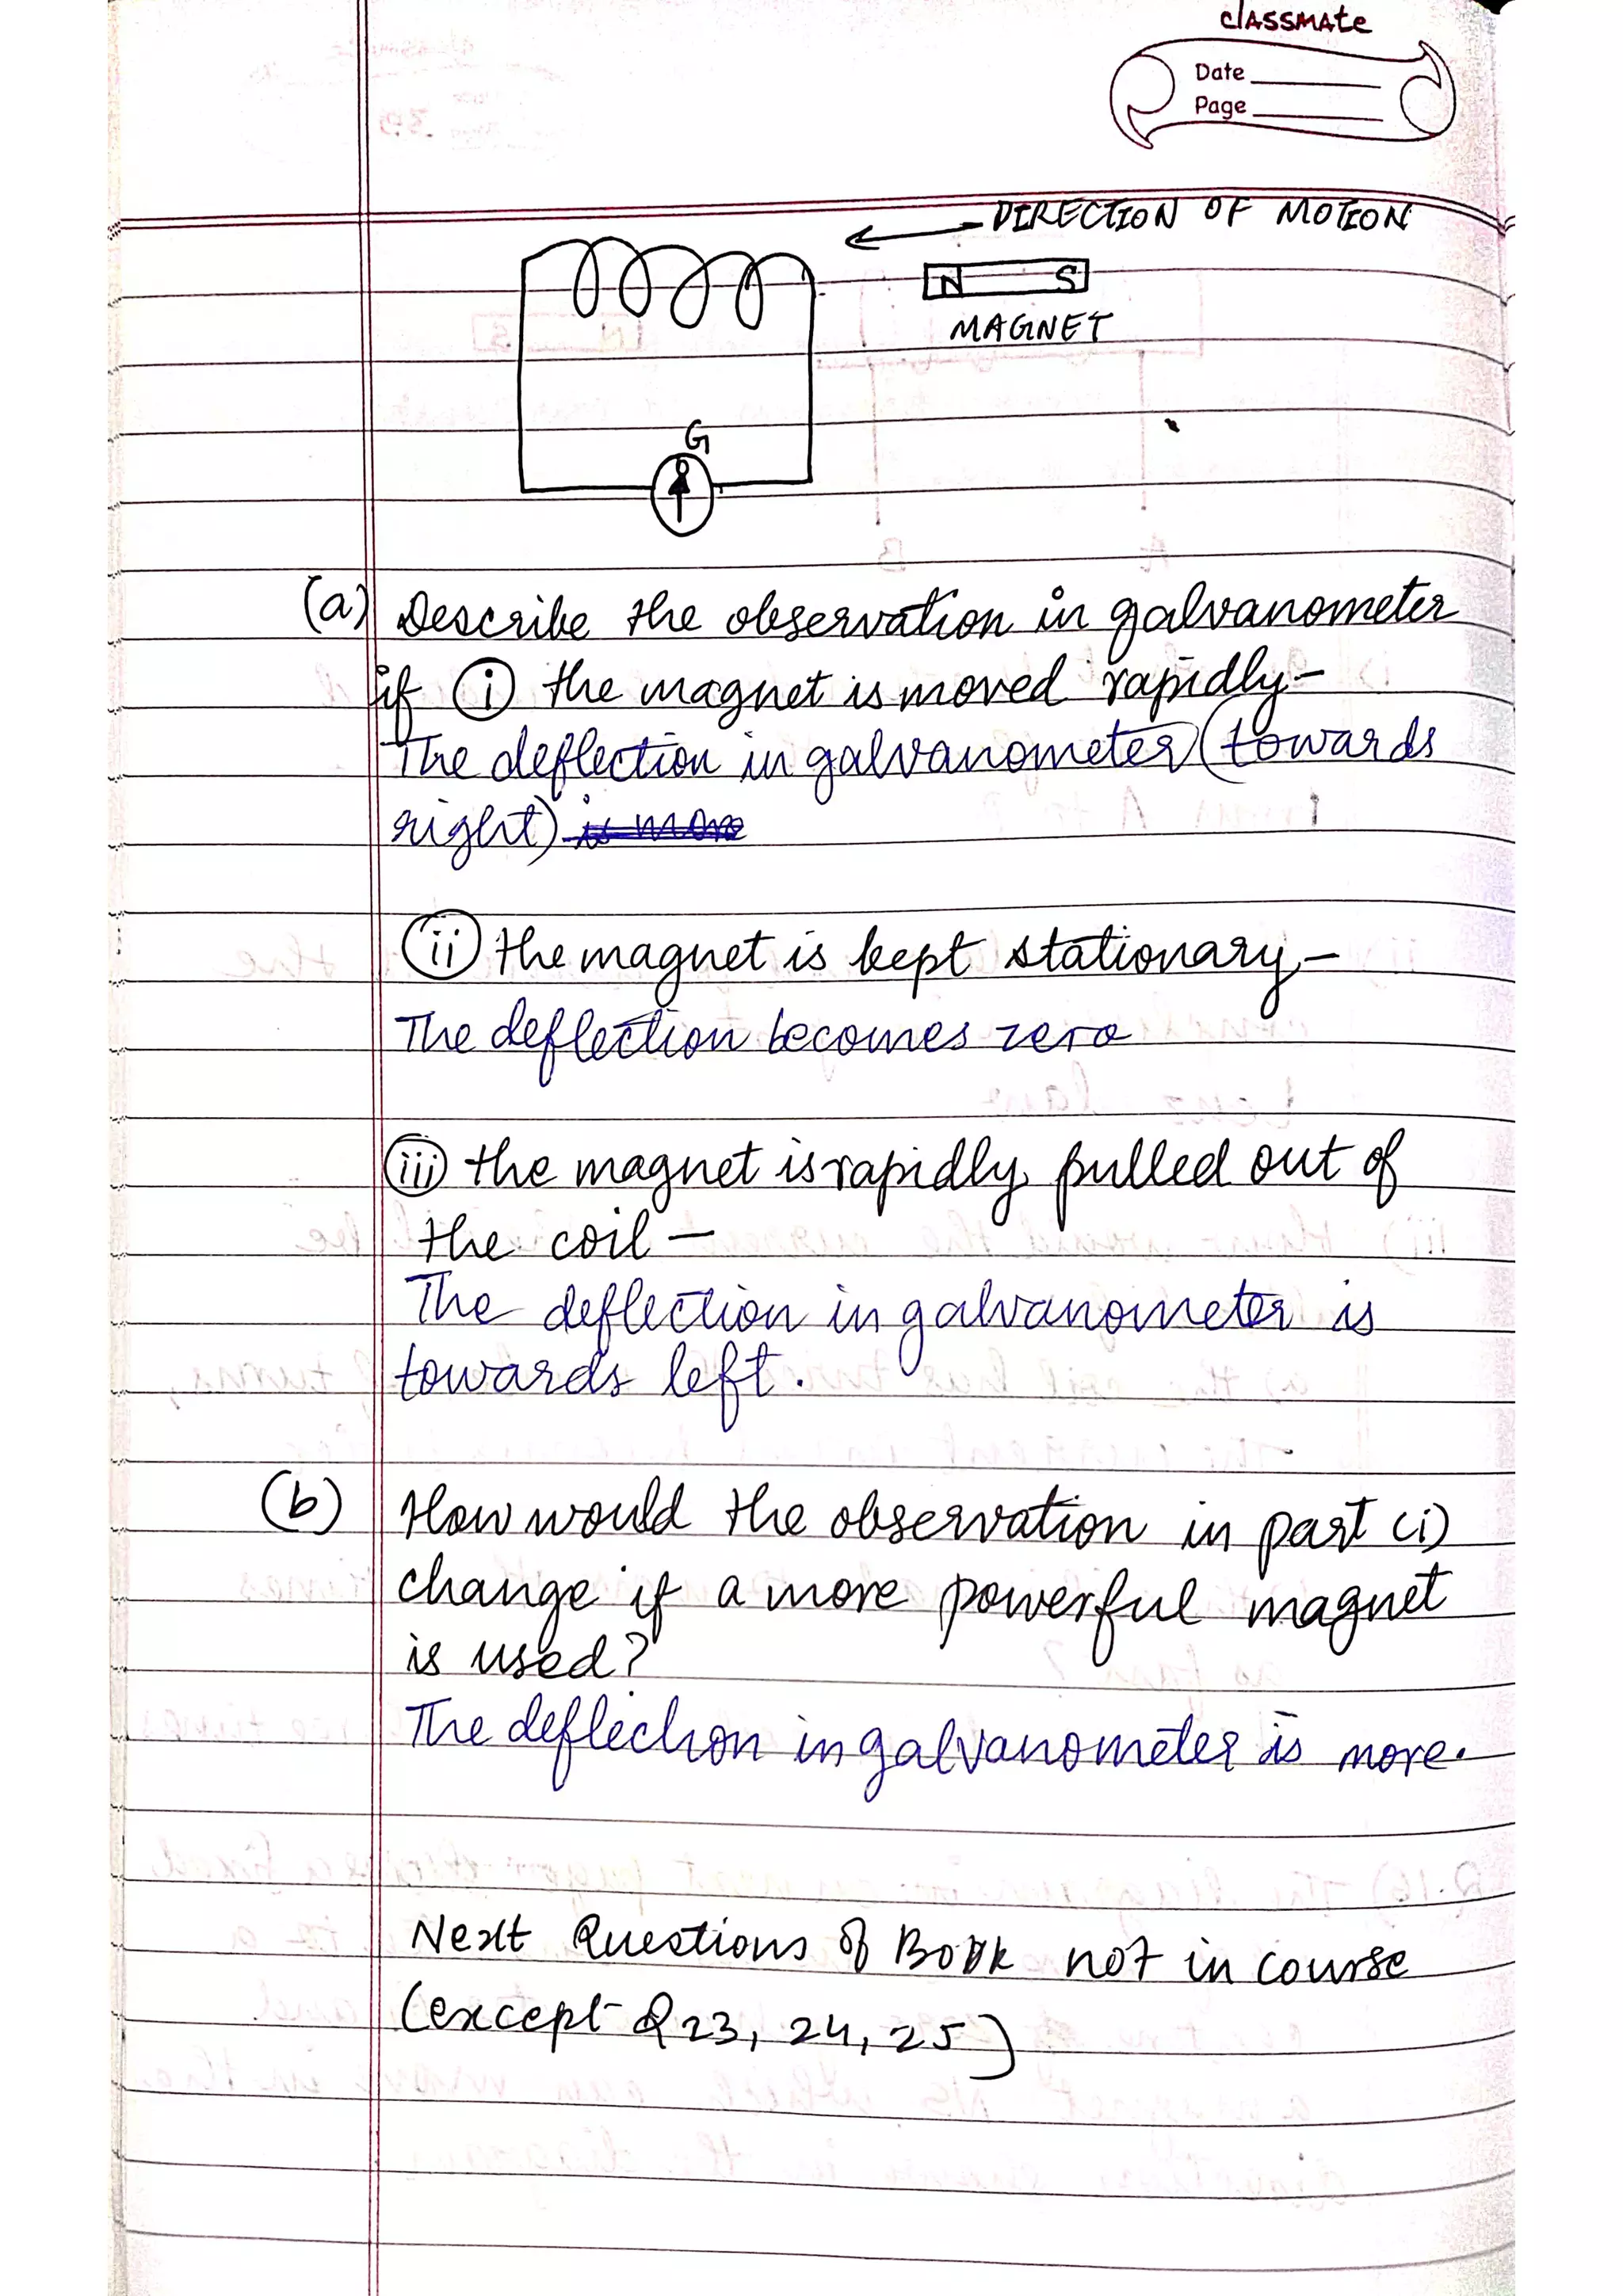 classmate
Date
Page
DIRECTION OF MOTION
N S
MAGNET
G
(a) Describe the observation in galvanometer
if (i) the magnet is moved rapidly-
The deflection in galvanometer (towards
right) is more
(ii) the magnet is kept stationary-
The deflection becomes zero
(iii) the magnet is rapidly pulled out of
the coil -
The deflection in galvanometer is
towards left.
(b) How would the observation in part (i)
change if a more powerful magnet
is used?
The deflection in galvanometer is more.
Next Questions of Book not in course
(except Q 23, 24, 25)